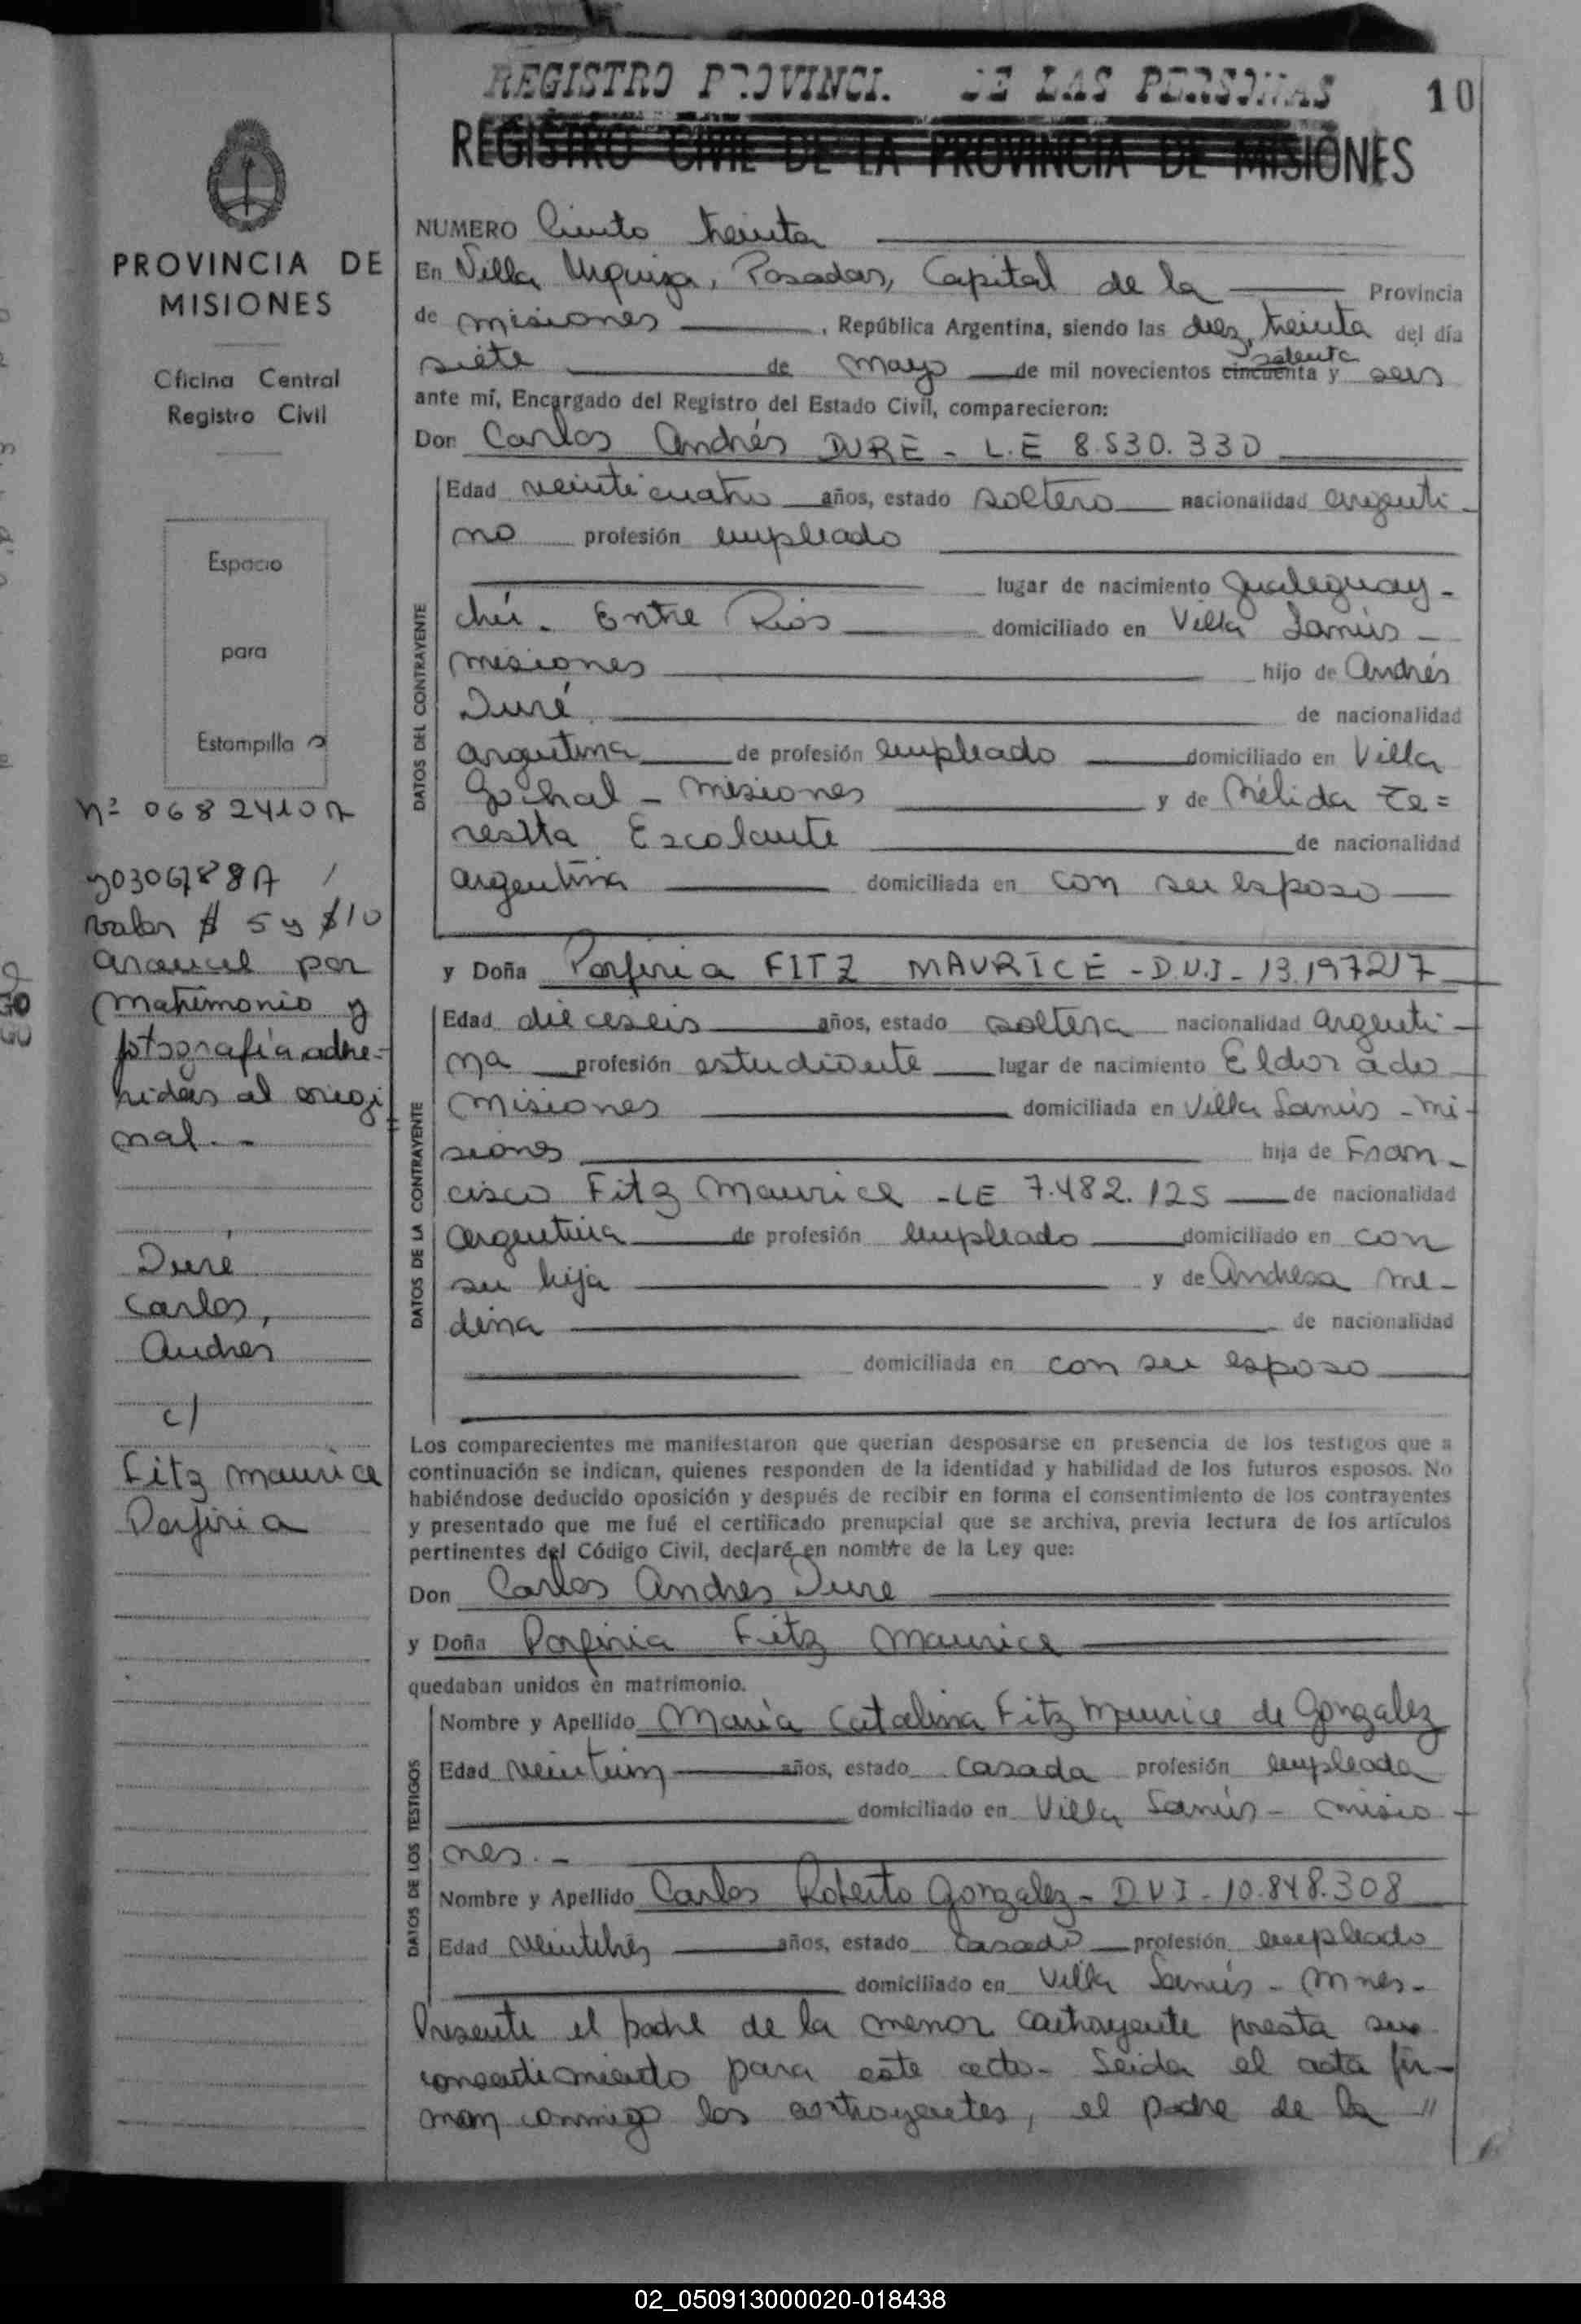 REGISTRO PROVINCI. DE LAS PERSONAS
10
REGISTRO CIVIL DE LA PROVINCIA DE MISIONES
PROVINCIA DE
MISIONES
Oficina Central
Registro Civil
Espacio
para
Estampilla s
Nº 06824210A
y 0306788A
valor $ 5 y $10
arancel por
matrimonio y
fotografía adhe-
ridas al origi
nal.-
Duré
Carlos,
Andres
c/
Fitz Maurice
Porfiria
NUMERO Ciento treinta
En Villa Urquiza, Posadas, Capital de la Provincia
de misiones, República Argentina, siendo las diez, treinta del día
siete de mayo de mil novecientos cincuenta y setenta seis
ante mí, Encargado del Registro del Estado Civil, comparecieron:
Don Carlos Andrés DURE - L.E 8.530.330
DATOS DEL CONTRAYENTE
Edad veinticuatro años, estado soltero nacionalidad argenti-
no profesión empleado
lugar de nacimiento Gualeguay-
chú. Entre Rios domiciliado en Villa Lanús-
misiones hijo de Andrés
Duré de nacionalidad
argentina de profesión empleado domiciliado en Villa
- misiones y de Nélida Te=
resita Escalante de nacionalidad
argentina domiciliada en con su esposo
y Doña Porfiria FITZ MAURICE - D.N.I - 13.197217
DATOS DE LA CONTRAYENTE
Edad dieceseis años, estado soltera nacionalidad argenti-
na profesión estudiante lugar de nacimiento Eldorado
misiones domiciliada en Villa Lanús - mi-
siones hija de Fran-
cisco Fitz Maurice - LE 7.482.125 de nacionalidad
argentina de profesión empleado domiciliado en con
su hija y de Andresa me-
dina de nacionalidad
domiciliada en con su esposo
Los comparecientes me manifestaron que querían desposarse en presencia de los testigos que a
continuación se indican, quienes responden de la identidad y habilidad de los futuros esposos. No
habiéndose deducido oposición y después de recibir en forma el consentimiento de los contrayentes
y presentado que me fué el certificado prenupcial que se archiva, previa lectura de los artículos
pertinentes del Código Civil, declaré en nombre de la Ley que:
Don Carlos Andres Dure
y Doña Porfiria Fitz Maurice
quedaban unidos en matrimonio.
DATOS DE LOS TESTIGOS
Nombre y Apellido María Catalina Fitz Maurice de Gonzalez
Edad veintiun años, estado casada profesión empleada
domiciliado en Villa Lanús - misio-
nes.-
Nombre y Apellido Carlos Roberto Gonzalez - D.N.I - 10.848.308
Edad veintitrés años, estado casado profesión empleado
domiciliado en Villa Lanús - Mnes-
Presente el padre de la menor contrayente presta su
consentimiento para este acto- Leida el acta fir-
man conmigo los contrayentes, el padre de la "
02_050913000020-018438